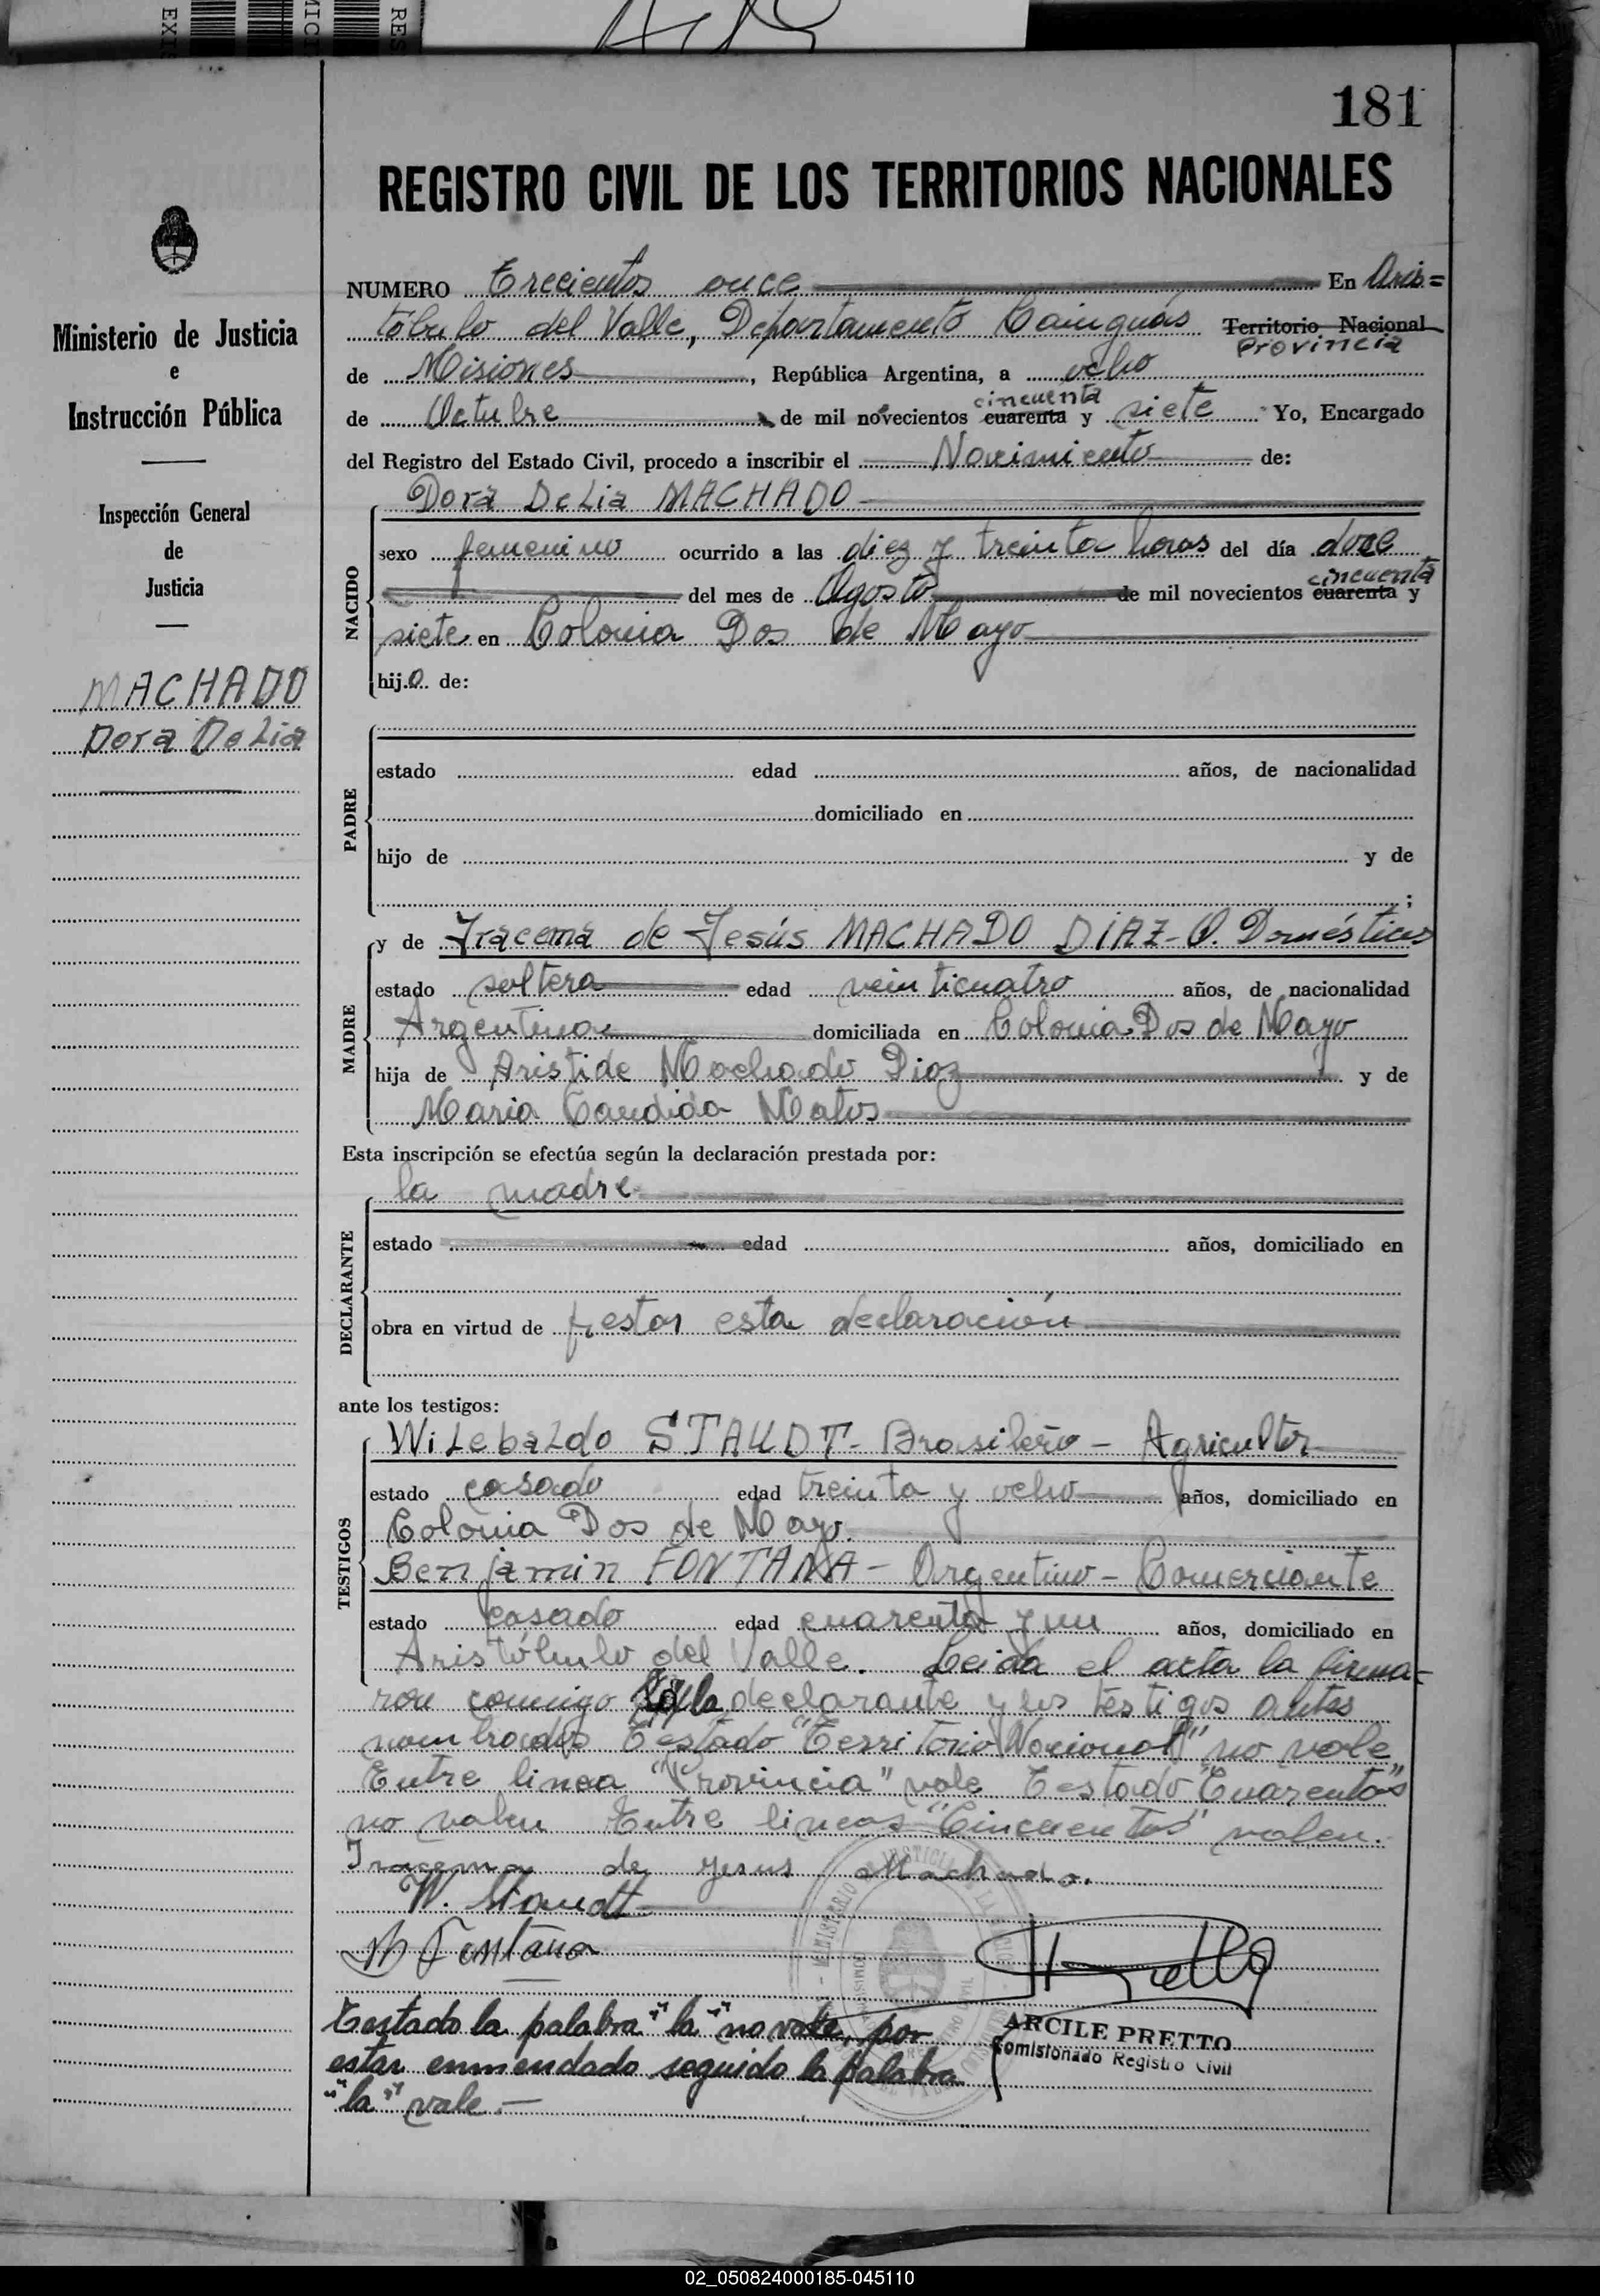 EXI
MICI
RES
181
REGISTRO CIVIL DE LOS TERRITORIOS NACIONALES
Ministerio de Justicia
e
Instrucción Pública
Inspección General
de
Justicia
MACHADO
Dora Delia
NUMERO Trecientos once En Aris=
tóbulo del Valle, Departamento Cainguás Territorio Nacional
Provincia
de Misiones, República Argentina, a ocho
cincuenta
de Octubre de mil novecientos cuarenta y siete Yo, Encargado
del Registro del Estado Civil, procedo a inscribir el Nacimiento de:
Dora Delia MACHADO
NACIDO
sexo femenino ocurrido a las diez y treinta horas del día doce
cincuenta
del mes de Agosto de mil novecientos cuarenta y
siete en Colonia Dos de Mayo
hija de:
PADRE
estado edad años, de nacionalidad
domiciliado en
hijo de y de
;
MADRE
y de Iracema de Jesús MACHADO DIAZ - Q. Domésticos
estado soltera edad veinticuatro años, de nacionalidad
Argentina domiciliada en Colonia Dos de Mayo
hija de Aristide Machado Diaz y de
Maria Candida Matos
Esta inscripción se efectúa según la declaración prestada por:
la madre
DECLARANTE
estado edad años, domiciliado en
obra en virtud de prestar esta declaración
ante los testigos:
TESTIGOS
Wilebaldo STAUDT - Brasileño - Agricultor
estado casado edad treinta y ocho años, domiciliado en
Colonia Dos de Mayo.
Benjamin FONTANA - Argentino - Comerciante
estado casado edad cuarenta y un años, domiciliado en
Aristóbulo del Valle. Leida el acta la firma-
ron conmigo la declarante y los testigos antes
nombrados Testado "Territorio Nacional" no vale
Entre linea "Provincia" vale Testado "Cuarentas"
no valen Entre lineas "Cincuentas" valen.
Iracema de Jesus Machado.
W. Staudt
B Fontana
Testado la palabra "la" no vale, por
estar enmendado seguido la palabra
"la" vale. —
ARCILE PRETTO
Comisionado Registro Civil
02_050824000185-045110